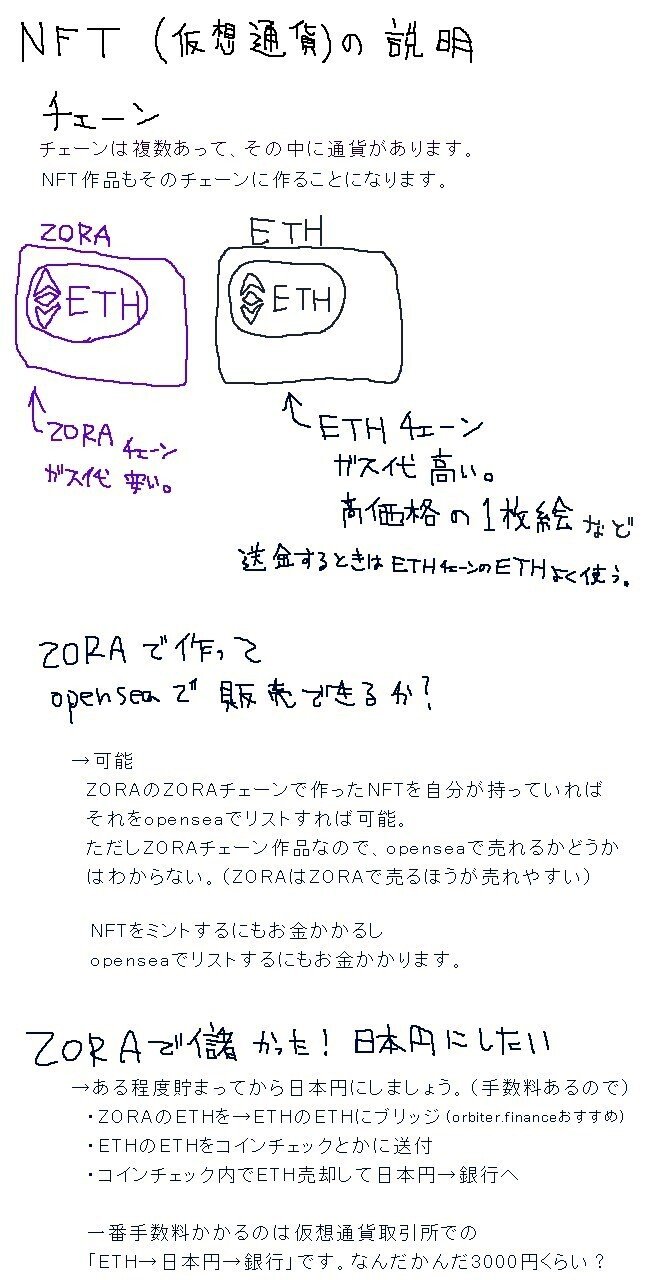 NFT (仮想通貨)の説明
チェーン
チェーンは複数あって、その中に通貨があります。
NFT作品もそのチェーンに作ることになります。
ZORA
ETH
ETH
ETH
ZORAチェーン
ガス代 安い。
ETHチェーン
ガス代 高い。
高価格の1枚絵など
送金するときはETHチェーンのETHよく使う。
ZORAで作って
openseaで販売できるか?
→可能
ZORAのZORAチェーンで作ったNFTを自分が持っていれば
それをopenseaでリストすれば可能。
ただしZORAチェーン作品なので、openseaで売れるかどうか
はわからない。(ZORAはZORAで売るほうが売れやすい)
NFTをミントするにもお金かかるし
openseaでリストするにもお金かかります。
ZORAで儲かった! 日本円にしたい
→ある程度貯まってから日本円にしましょう。(手数料あるので)
・ZORAのETHを→ETHのETHにブリッジ (orbiter.financeおすすめ)
・ETHのETHをコインチェックとかに送付
・コインチェック内でETH売却して日本円→銀行へ
一番手数料かかるのは仮想通貨取引所での
「ETH→日本円→銀行」です。なんだかんだ3000円くらい?